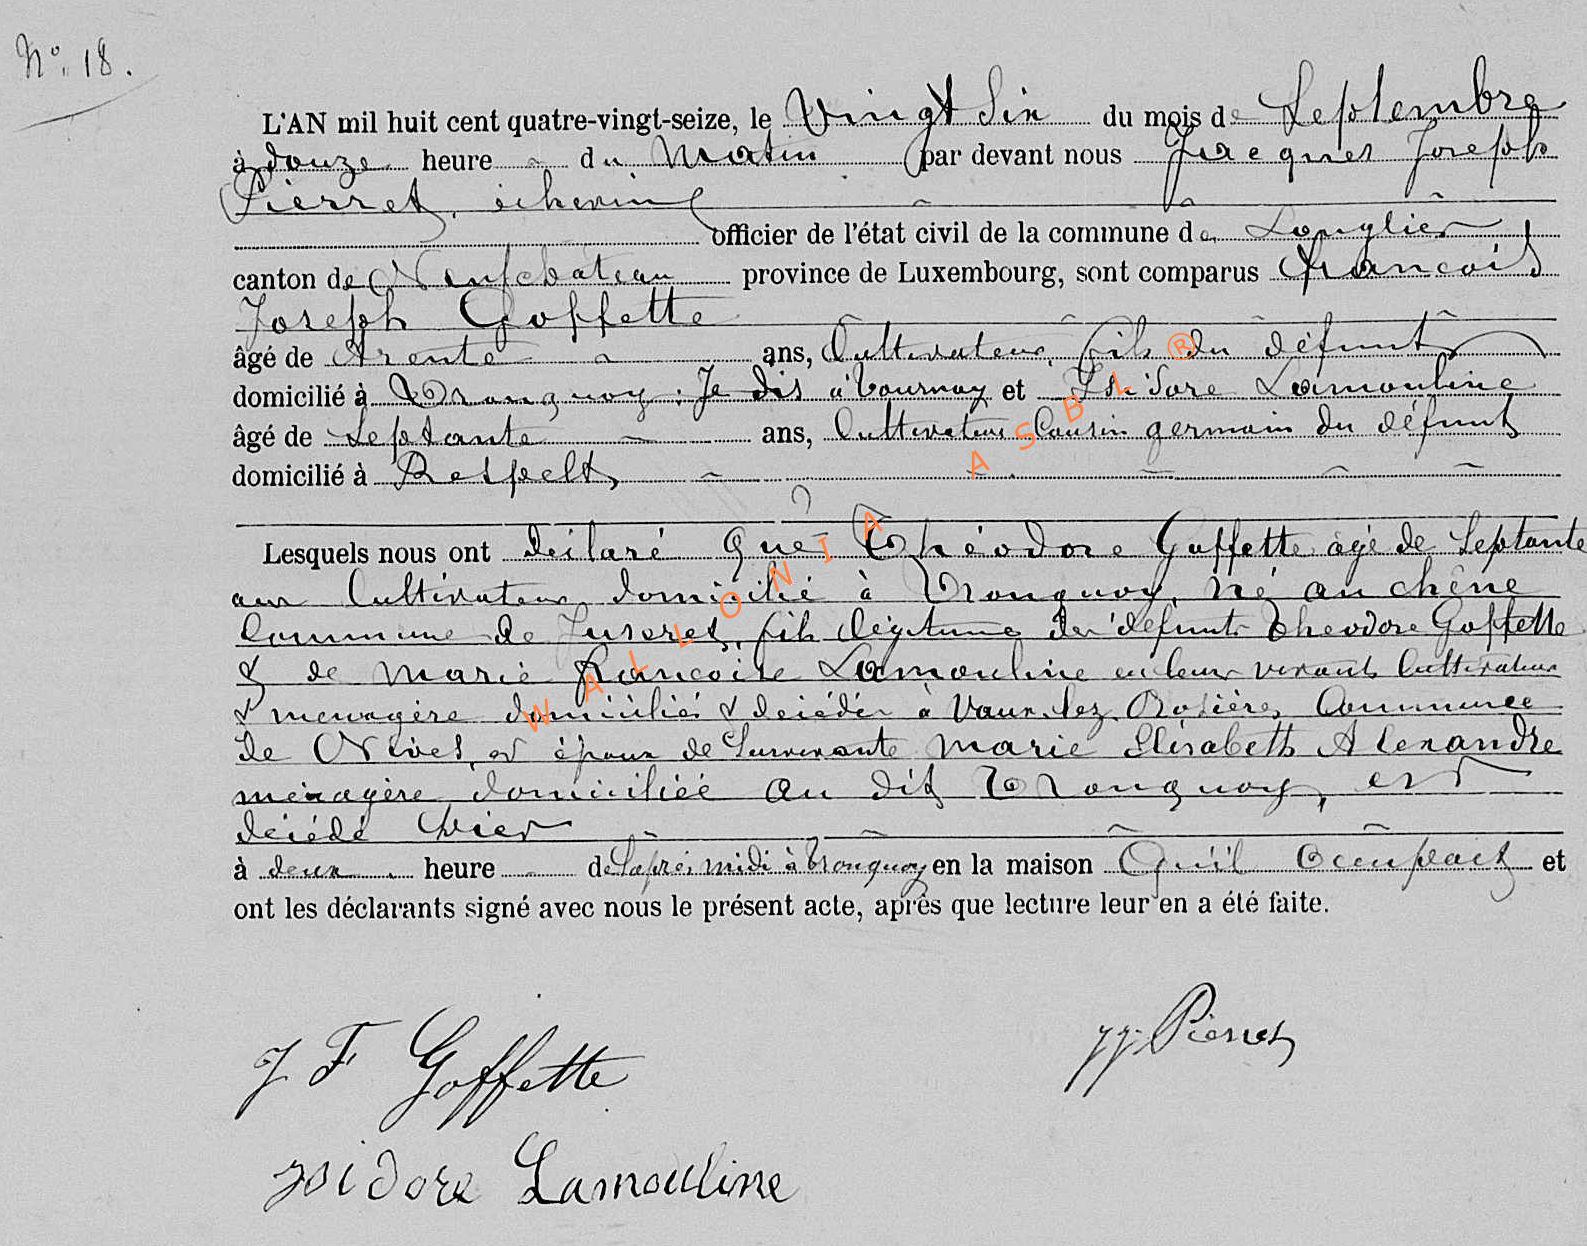 N°. 18.
L'AN mil huit cent quatre-vingt-seize, le Vingt Six du mois de Septembre
à douze heure du Matin par devant nous Jacques Joseph
Pierret, échevin
officier de l'état civil de la commune de Longlier
canton de Neufchateau province de Luxembourg, sont comparus Francois
Joseph Goffette
âgé de trente ans, Cultivateur, fils du défunt
domicilié à Tronquoy : Je dis à Tournay et Isidore Lamouline
âgé de Septante ans, Cultivateur Cousin germain du défunt
domicilié à Respelt
Lesquels nous ont déclaré que Théodore Goffette âgé de Septante
ans Cultivateur domicilié à Tronquoy, né au chêne
Commune de Juseret, fils légitime des défunts Theodore Goffette
& de Marie Francoise Lamouline en leur vivant Cultivateur
& menagère domiciliés & décédés à Vaux-lez-Rosières Commune
de Nives, et époux de Survivante Marie Elisabeth Alexandre
ménagère domiciliée au dit Tronquoy, est
décédé hier
à deux heure de l'après midi à Tronquoy en la maison Qu'il Occupait et
ont les déclarants signé avec nous le présent acte, après que lecture leur en a été faite.
J F Goffette
JJ. Pierret
Isidore Lamouline
WALLONIA ASBL ®